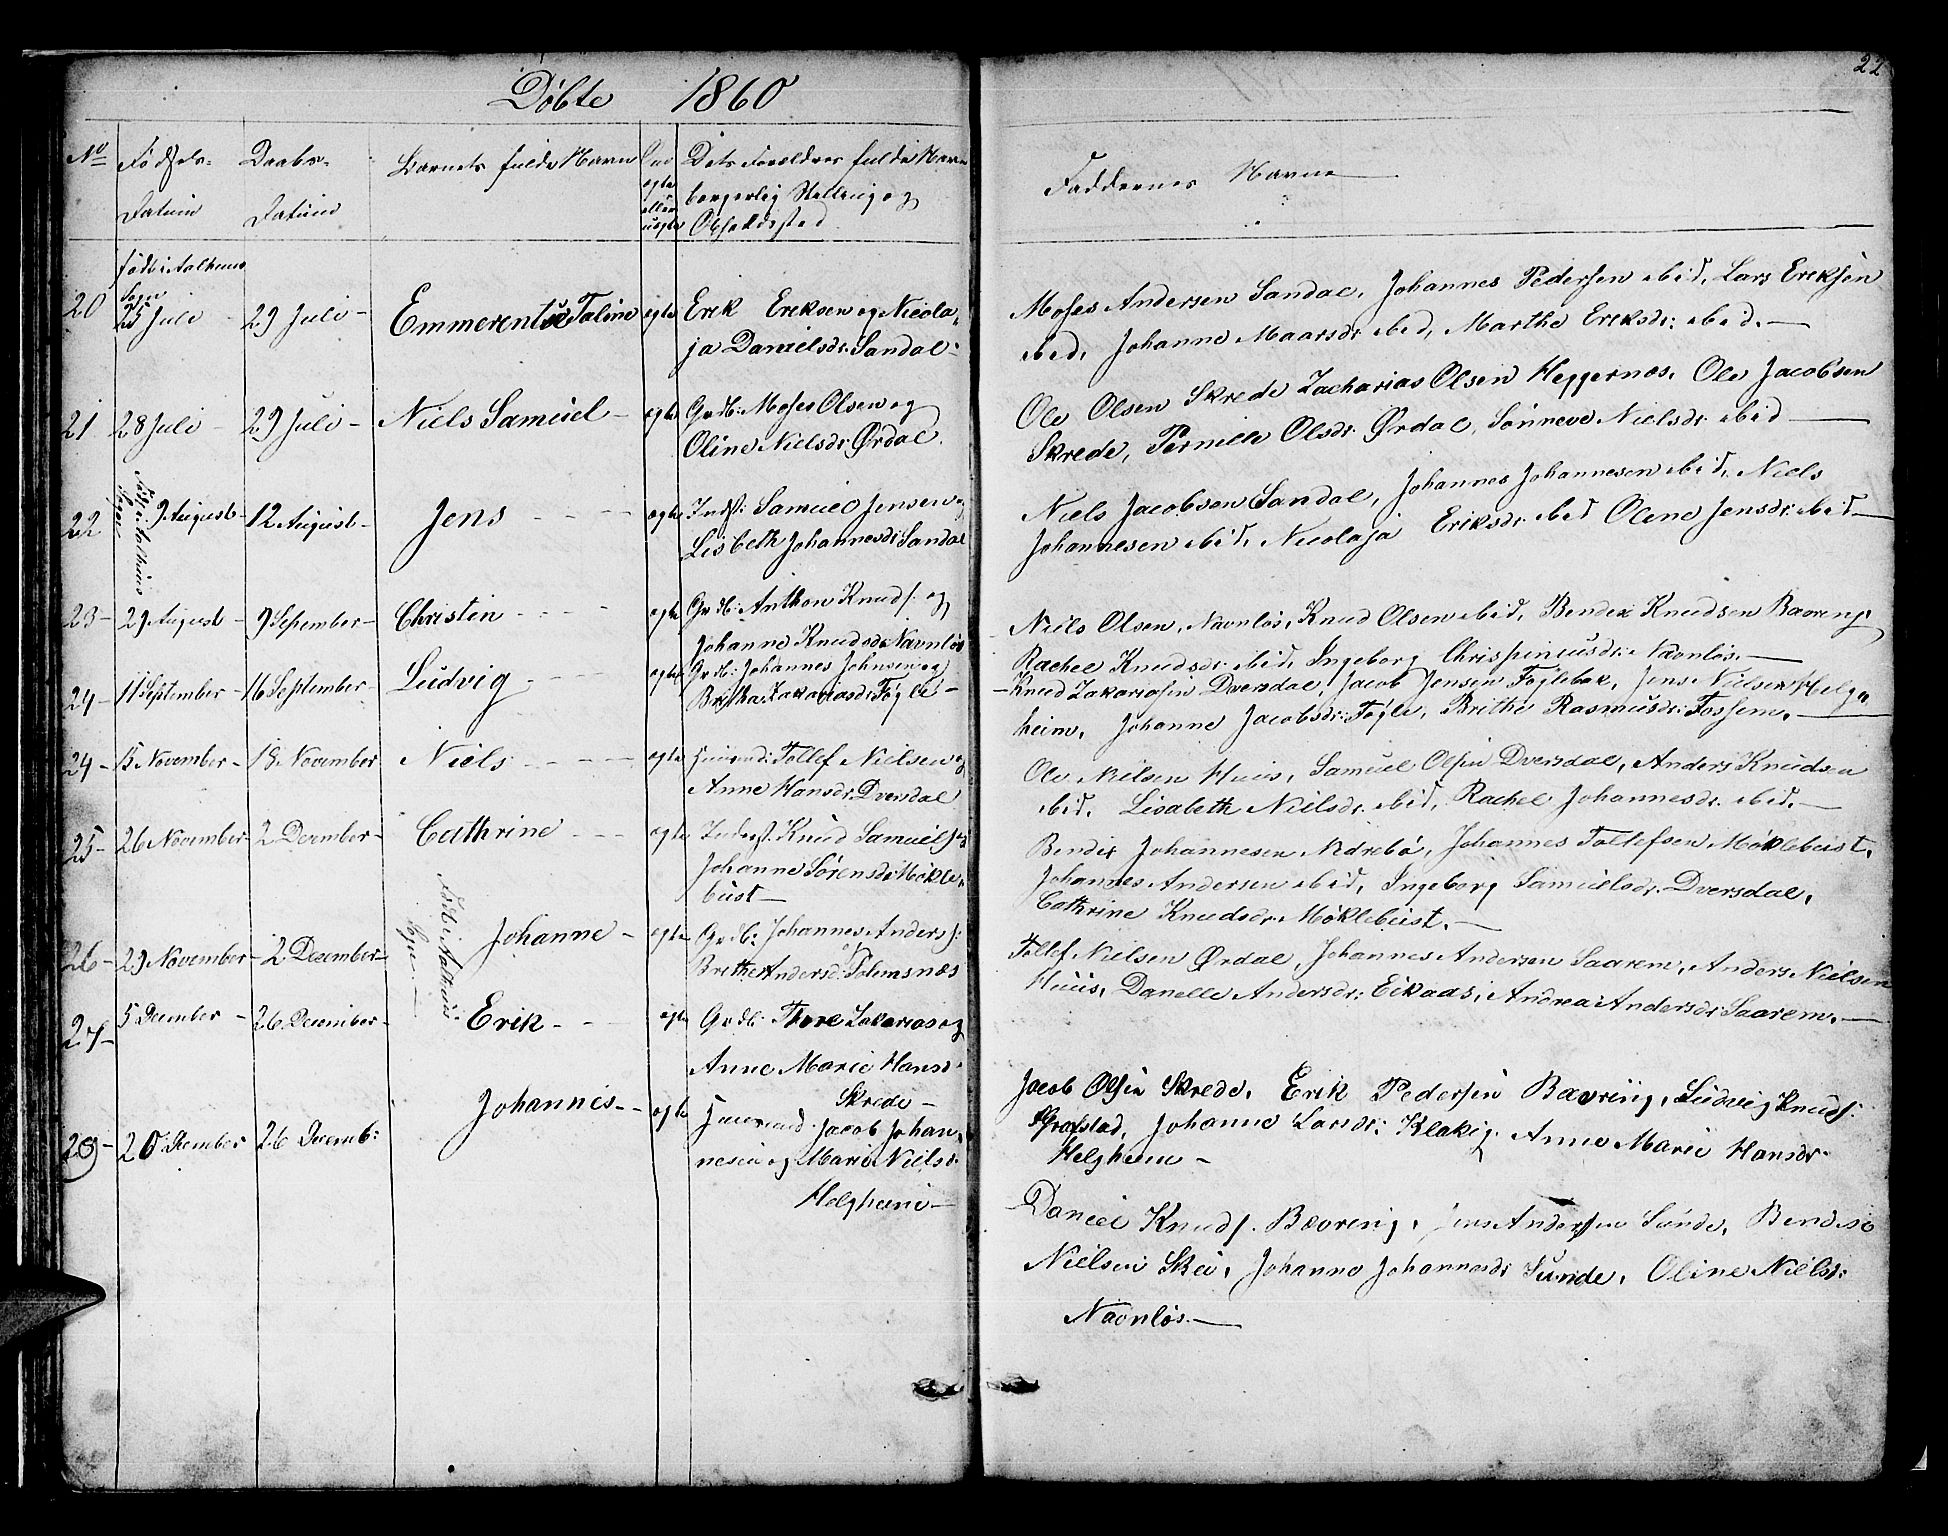 Døbte 1860
No Fødsels- Datum Daabs- Datum Barnets fulde Navn Om ægte eller uægte Dets Forældres fulde Navn borgerlig Stilling og Opholdssted
født i Aalhuus Sogn
20 25 Juli - 29 Juli - Emmerentze Taline ægte Erik Eriksen og Nicola-
ja Danielsdr: Sandal -
21 28 Juli - 29 Juli - Niels Samuel - ægte Grdb: Moses Olsen og
Oline Nielsdr: Ørdal.
Født i Aalhuus Sogn
22 9 August - 12 August - Jens - - - ægte Indst: Samuel Jensen og
Lisbeth Johannesdr Sandal
23 - 29 August - 9 Sepember - Christin - - - - ægte Grdb: Anthon Knuds: og
Johanne Knudsd: Navnløs
24 - 11 September - 16 September - Ludvig - - - - ægte Grdb: Johannes Johnsen og
Britha Zakariasdr: Føgle -
24 - 15 November - 18 November Niels - - - - ægte Huusmd: Tollef Nielsen og
Anne Hansdr: Dversdal
25 - 26 November - 2 December - Cathrine - - - ægte Inderst. Knud Samuels: og
Johanne Sørensdr: Møkle-
bust -
Født i Aalhuus Sogn -
26 - 29 November - 2 December - Johanne - ægte Grdb: Johannes Anders: og
Brithe Andersd: Folemsnæs
27 - 5 December - 26 December - Erik - - - ægte Grdb: Thore Zakarias og
Anne Marie Hansd:
Skrede -
28 - 20 December 26 Decemb: Johannes - - ægte Huusmd: Jacob Johan-
nesen og Marie Nielsd:
Helgheim -
22
Faddernes Navne
Moses Andersen Sandal, Johannes Pedersen ibid, Lars Eriksen
ibid, Johanne Maarsdr ibid, Marthe Eriksdr: ibid. -
Ole Olsen Skrede Zacharias Olsen Heggernæs, Ole Jacobsen
Skrede, Pernille Olsdr: Ørdal, Sønneve Nielsdr: ibid -
Niels Jacobsen Sandal, Johannes Johannesen ibid, Niels
Johannesen ibid, Nicolaja Eriksdr: ibid Oline Jensdr: ibid -
Niels Olsen, Navnløs, Knud Olsen ibid, Bendix Knudsen Bævring,
Rachel Knudsdr: ibid, Ingeborg Chrispinusdr: Navnløs. -
- Knud Zakariasen Dversdal, Jacob Jensen Føglebak, Jens Nielsen Helg-
heim, Johanne Jacobsdr: Føgle, Brithe Rasmusdr: Fossem. -
Ole Nielsen Huus, Samuel Olsen Dversdal, Anders Knudsen
ibid. Lisabeth Nielsdr: ibid, Rachel Johannesdr: ibid. -
Bendix Johannesen Nedrebø, Johannes Tollefsen Møklebust,
Johannes Andersen ibid, Ingeborg Samuelsdr: Dversdal,
Cathrine Knudsdr: Møklebust. -
Tollef Nielsen Ørdal, Johannes Andersen Saarem, Anders Nielsen
Huus, Danelle Andersdr: Eikaas, Andrea Andersdr: Saarem. -
Jacob Olsen Skrede, Erik Pedersen Bævring, Ludvig Knuds:
Aarstad, Johanne Larsdr: Klakeg, Anne Marie Hansdr:
Helgheim -
- Daniel Knuds: Bævring, Jens Andersen Sunde, Bendix
Nielsen Skei, Johanne Johannesdr Sunde, Oline Nielsd:
Navnløs. -